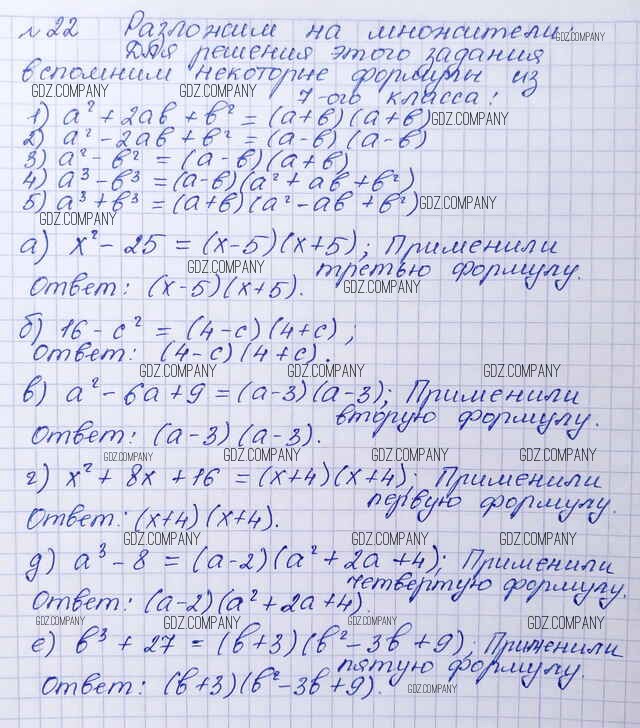 №22 Разложим на множители.
GDZ.COMPANY
Для решения этого задания
вспомним некоторые формулы из
GDZ.COMPANY GDZ.COMPANY
7-ого класса:
1) a² + 2ab + b² = (a+b)(a+b) GDZ.COMPANY
2) a² - 2ab + b² = (a-b)(a-b)
3) a² - b² = (a-b)(a+b)
4) a³ - b³ = (a-b)(a² + ab + b²)
5) a³ + b³ = (a+b)(a² - ab + b²) GDZ.COMPANY
GDZ.COMPANY
а) x² - 25 = (x-5)(x+5); Применили
GDZ.COMPANY третью формулу.
Ответ: (x-5)(x+5). GDZ.COMPANY
б) 16 - c² = (4-c)(4+c);
Ответ: (4-c)(4+c).
GDZ.COMPANY GDZ.COMPANY GDZ.COMPANY
в) a² - 6a + 9 = (a-3)(a-3); Применили
вторую формулу.
Ответ: (a-3)(a-3).
GDZ.COMPANY GDZ.COMPANY GDZ.COMPANY GDZ.COMPANY
г) x² + 8x + 16 = (x+4)(x+4); Применили
первую формулу.
Ответ: (x+4)(x+4).
GDZ.COMPANY GDZ.COMPANY GDZ.COMPANY
д) a³ - 8 = (a-2)(a² + 2a + 4); Применили
четвертую формулу.
Ответ: (a-2)(a² + 2a + 4).
GDZ.COMPANY GDZ.COMPANY GDZ.COMPANY GDZ.COMPANY
е) b³ + 27 = (b+3)(b² - 3b + 9); Применили
пятую формулу.
Ответ: (b+3)(b² - 3b + 9). GDZ.COMPANY